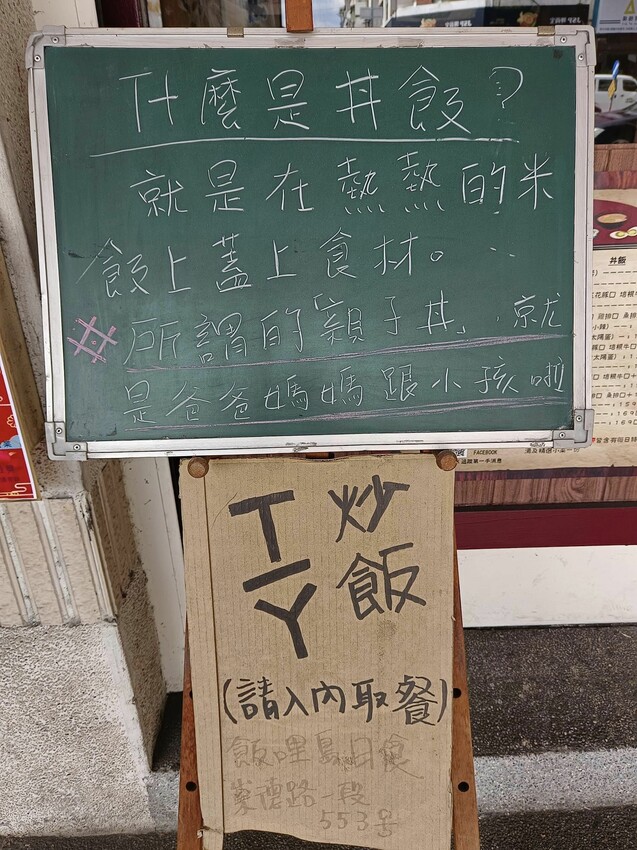 什麼是丼飯?
就是在熱熱的米
飯上蓋上食材。
#所謂的「親子丼」,就
是爸爸媽媽跟小孩啦
T-Y
炒飯
(請入內取餐)
飯哩島日食
崇德路一段
553号
丼飯
FACEBOOK